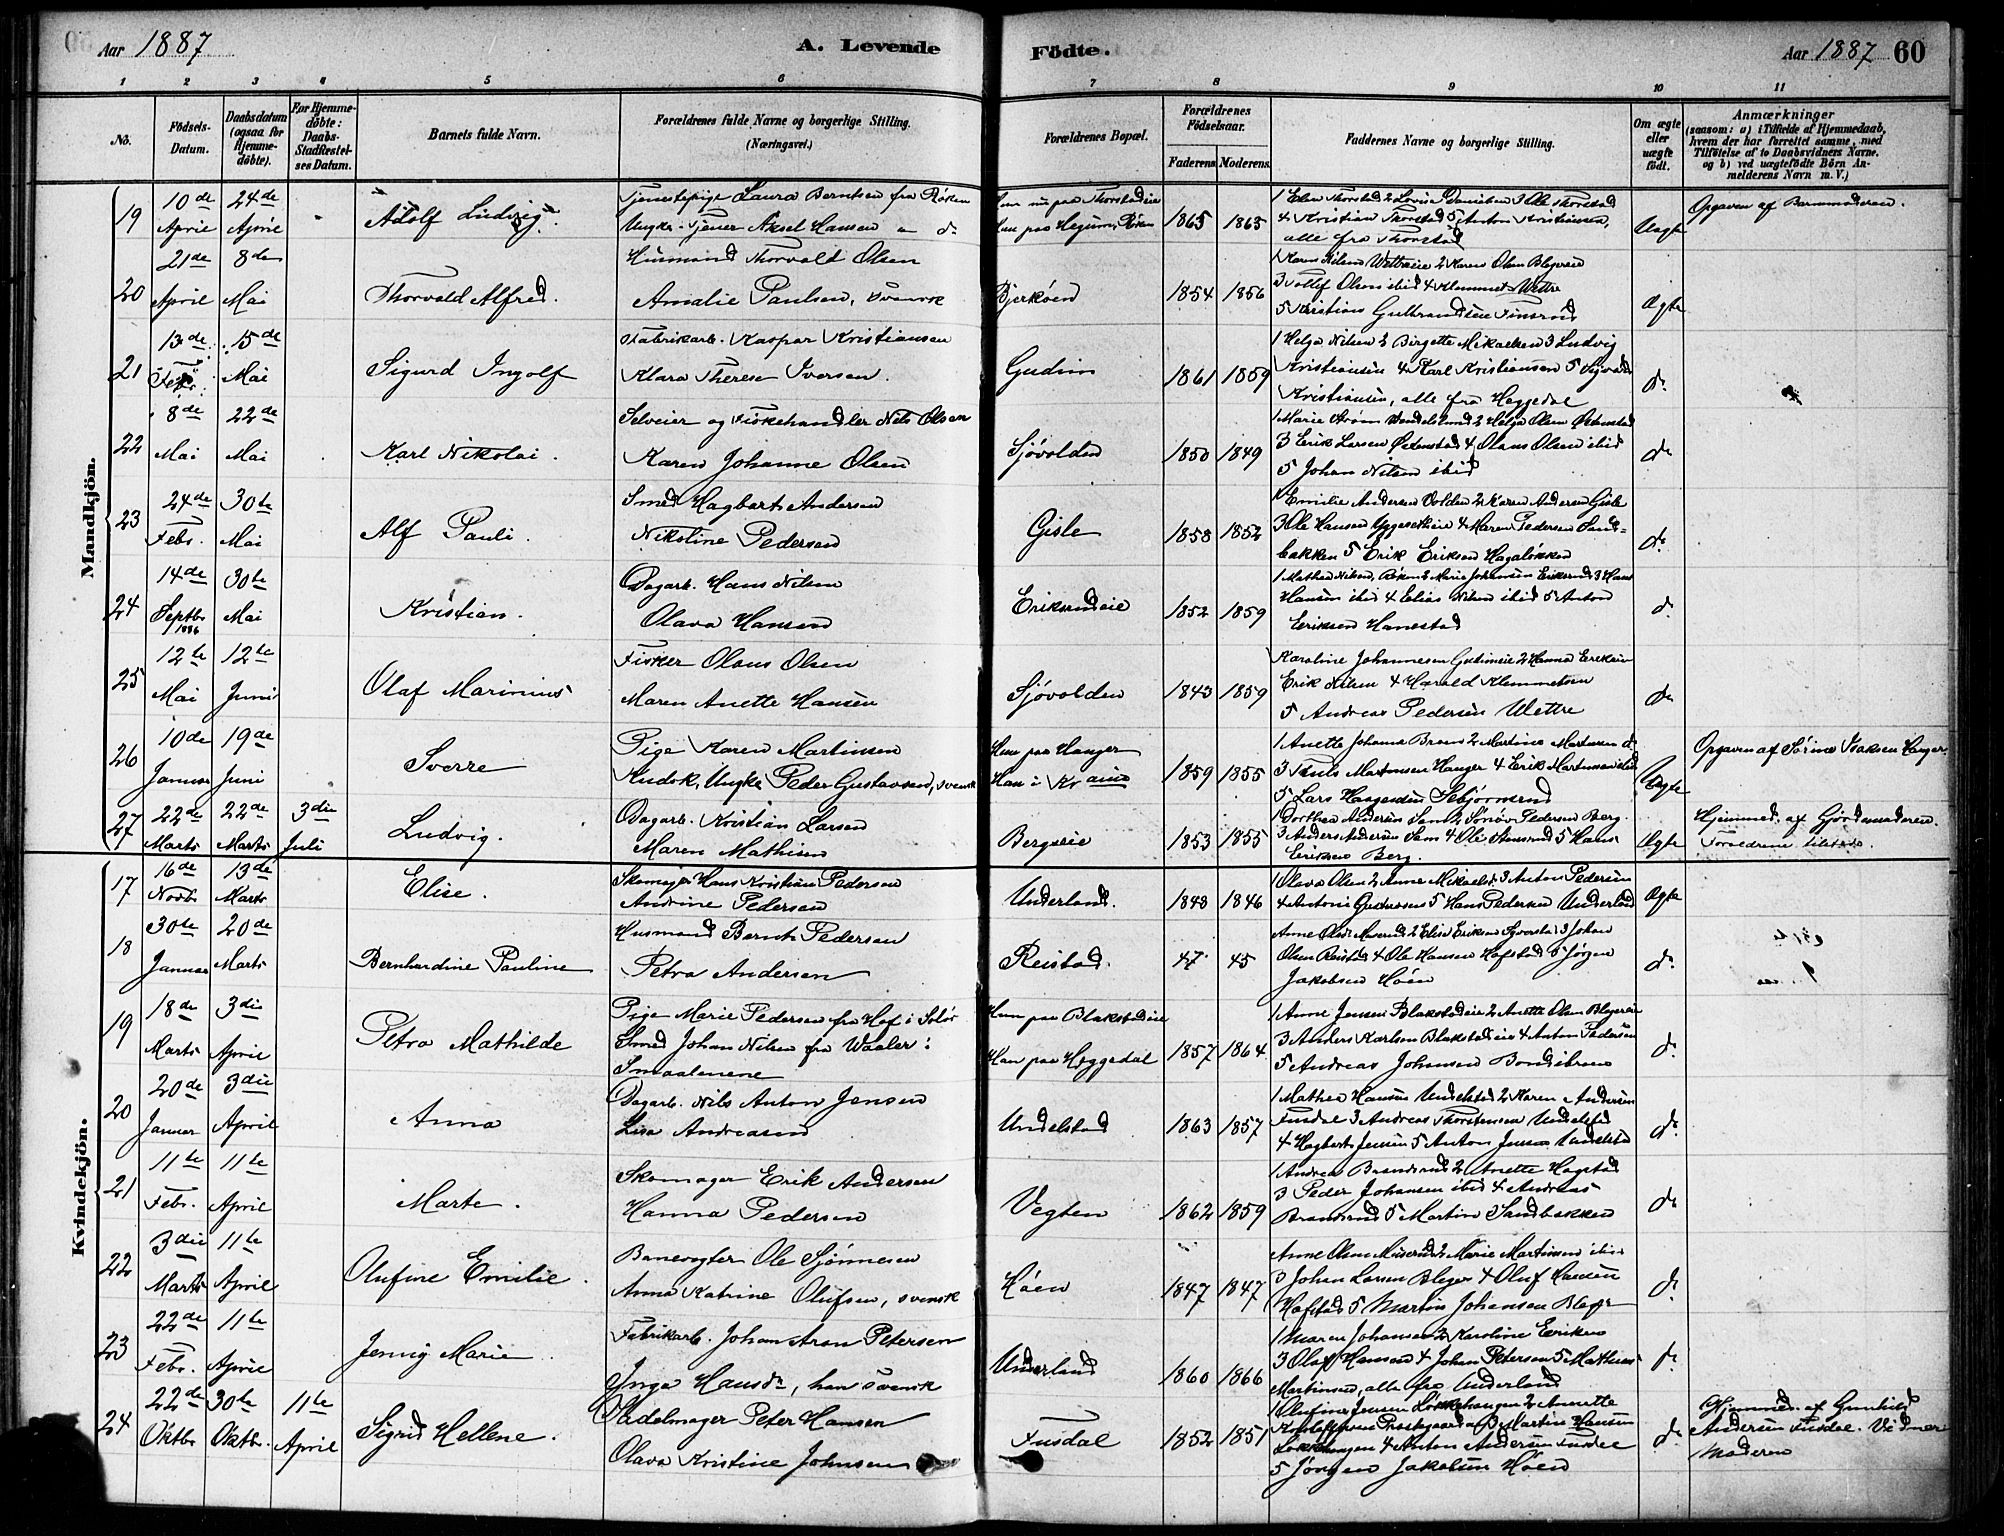 Aar 1887
A. Levende
Födte.
Aar 1887 60
1 2 3 4 5 6 7 8 9 10 11
No.
Födsels-Datum.
Daabsdatum (ogsaa for Hjemmedöbte).
For Hjemmedöbte: Daabs-Stadfæstelses Datum.
Barnets fulde Navn.
Forældrenes fulde Navne og borgerlige Stilling. (Næringsvei.)
Forældrenes Bopæl.
Forældrenes Födselsaar.
Faderens. Moderens.
Faddernes Navne og borgerlige Stilling.
Om ægte eller uægte födt.
Anmærkninger
(saasom: a) i Tilfælde af Hjemmedaab, hvem der har forrettet samme, med Tilföielse af to Daabsvidners Navne, og b) ved uægtefödte Börn Anmelderens Navn m. V.)
Mandkjön.
19 10de April 24de April
Adolf Ludvig.
Tjenestepige Laura Berntsen fra Røken
Ungk. Tjener Aksel Hansen
1865 1865
1 Ellen Thorstad 2 Lovise Danielsen 3 Ole Thorstad
4 Kristian Thorstad 5 Anton Kristiansen,
alle fra Thorstad
Uægte
Opgaven af Barnemoderen.
20 21de April 8de Mai
Thorvald Alfred.
Husmand Thorvald Olsen
Amalie Paulsen, svensk
Bjerkøen
1854 1856
5 Kristian Gulbrandsen Finsrud
Ægte
21 13de Febr. 15de Mai
Sigurd Ingolf
Fabrikarb. Kaspar Kristiansen
Klara Therese Iversen.
Gudim
1861 1859
1 Helga Nilsen 2 Birgette Mikaelsen 3 Ludvig
Kristiansen 4 Karl Kristiansen 5
Kristiansen, alle fra Heggedal
do
22 8de Mai 22de Mai
Karl Nikolai.
Selveier og Fiskehandler Nils Olsen
Karen Johanne Olsen
Sjøvolden
1850 1849
3 Erik Larsen Østenstad 4 Olaus Olsen ibid
5 Johan Nilsen ibid
do
23 24de Febr. 30te Mai
Alf Pauli.
Smed Hagbart Andersen
Nikoline Pedersen
Gisle
1858 1852
1 Emilie Andersen Volden 2 Karen Andersen Gisle
3 Ole Hansen Yggesetheie 4 Maren Pedersen Sand-
bakken 5 Erik Eriksen Hagaløkken
do
24 14de Septbr 1886 30te Mai
Kristian.
Dagarb. Hans Nilsen
Olava Hansen
Eriksrudeie
1852 1859
1 Mathea Nilsen, Røken 2 Marie Johansen Eriksrud 3 Hans
Hansen ibid 4 Elias Nilsen ibid 5 Anton
Eriksen Hanestad
do
25 12te Mai 12te Juni
Olaf Marinius
Fisker Olaus Olsen
Maren Anette Hansen
Sjøvolden
1843 1859
1 Karoline Johannesen Gudimeie 2 Hanna Eriksen
Erik Nilsen 4 Harald Klemmetsen
5 Andreas Pedersen Wettre
do
26 10de Januar 19de Juni
Sverre
Pige Karen Martinsen
Kudsk, Ungk. Peder Gustavsen, svensk
Hun paa Hanger
Han i Kr ania
1859 1855
1 Anette Johanne Braen 2 Martine Martinsen do
3 Martinsen Hanger 4 Erik Martinsen ibid
5 Lars Haagensen
Uægte
Opgaven af Sørine Isaksen Hanger.
27 22de Marts 22de Marts 3die Juli
Ludvig.
Dagarb. Kristian Larsen
Maren Mathisen
Bergseie
1853 1855
1 Dorthea Andersen Sem 2 Pedersen Berg.
3 Anders Andersen Sem 4 Ole 5 Hans
Eriksen Berg.
Ægte
Hjemmed. af Gjordemoderen.
Forældrene tilstede.
Kvindekjön.
17 16de Novbr 13de Marts
Elise.
Skomager Hans Kristian Pedersen
Andrine Pedersen
Underland.
1848 1846
1 Olava Olsen 2 Anne Mikaels. 3 Anton Pedersen
4 Antoni Gustavsen 5 Hans Pedersen Underland
Ægte
18 30te Januar 20de Marts
Bernhardine Pauline
Husmand Bernt Pedersen
Petra Andersen
Reistad.
47 45
Olsen Reistad 4 Ole Hansen Hofstad 5 Jørgen
Jakobsen Høen
do
19 18de Marts 3die April
Petra Mathilde
Pige Marie Pedersen fra Hof i Solør
Smed Johan Nilsen fra Waaler i
Smaalenene
Hun paa Blakstadeie
Han paa Heggedal
1857 1864
1 Anne Jensen Blakstadeie 2 Anette Olsen Blegereie
3 Anders Karlsen Blakstadeie 4 Anton Pedersen
5 Andreas Johansen Bondibraaten
do
20 20de Januar 3die April
Anna
Dagarb. Nils Anton Jensen
Lisa Andreasen
Undelstad
1863 1857
1 Mathea Hansen Undelstad 2 Karen Andersen
Fusdal 3 Andreas Thorstensen Undelstad
4 Hagbart Jensen 5 Anton Jensen Undelstad
do
21 11te Febr. 11te April
Marte.
Skomager Erik Andersen
Hanna Pedersen
Vegten
1862 1859
1 Andrea Brandsrud 2 Anette Hogstad
3 Peder Johansen ibid 4 Andreas
Brandsrud 5 Martin Sandbakken
do
22 3die Marts 11te April
Olufine Emilie.
Banevogter Ole Sjønnesen
Anna Katrine Olufsen, svensk
Høen
1847 1847
Anne Olsen Miserud 2 Marie Martinsen ibid
3 Johan Larsen Bleger 4 Oluf Hansen
Hofstad 5 Martin Johansen Bleger
do
23 22de Febr. 11te April
Jenny Marie.
Fabrikarb. Johan Aron Petersen
Inga Hansdr, han svensk
Underland
1860 1866
1 Maren Johansen 2 Karoline Eriksen
3 Olaf Hansen 4 Johan Petersen 5 Mathias
Martinsen, alle fra Underland
do
24 22de Oktbr 30te Oktbr. 11te April
Sigrid Hellene.
Sadelmager Peter Hansen
Olava Kristine Johnsen
Fusdal
1852 1851
1 Olufine Jensen Løkkehaugen 2 Annette
3 Martin Hansen
Løkkehaugen 4 Anton Andersen Fusdal
5 Jørgen Jakobsen Høen
do
Hjemmed. af Gunhild
Andersen Fusdal. Vidner
Moderen